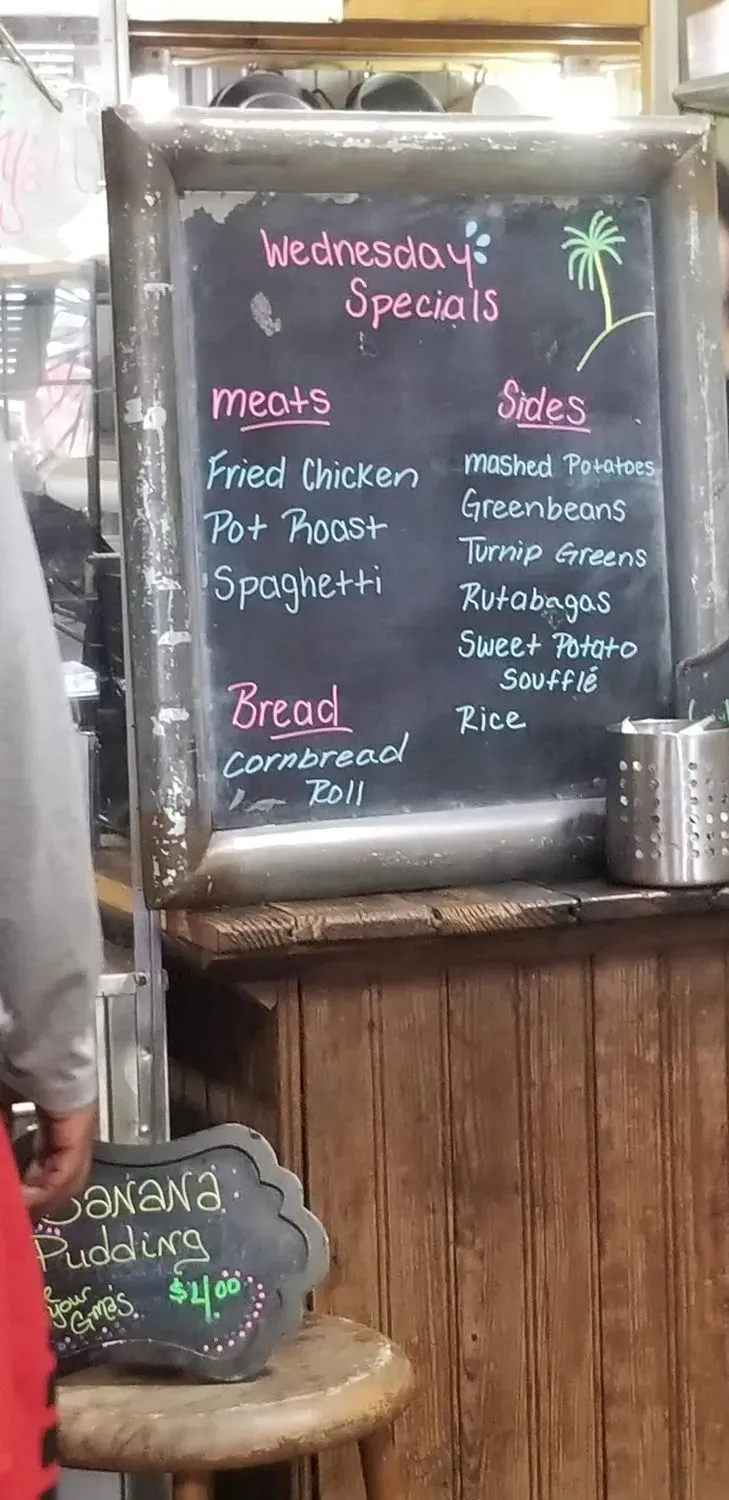 Wednesday
Specials
meats
Fried Chicken
Pot Roast
Spaghetti
Bread
Cornbread
Roll
Sides
mashed Potatoes
Greenbeans
Turnip Greens
Rutabagas
Sweet Potato
Soufflé
Rice
BANANA
Pudding
your
G-mas
$4.00